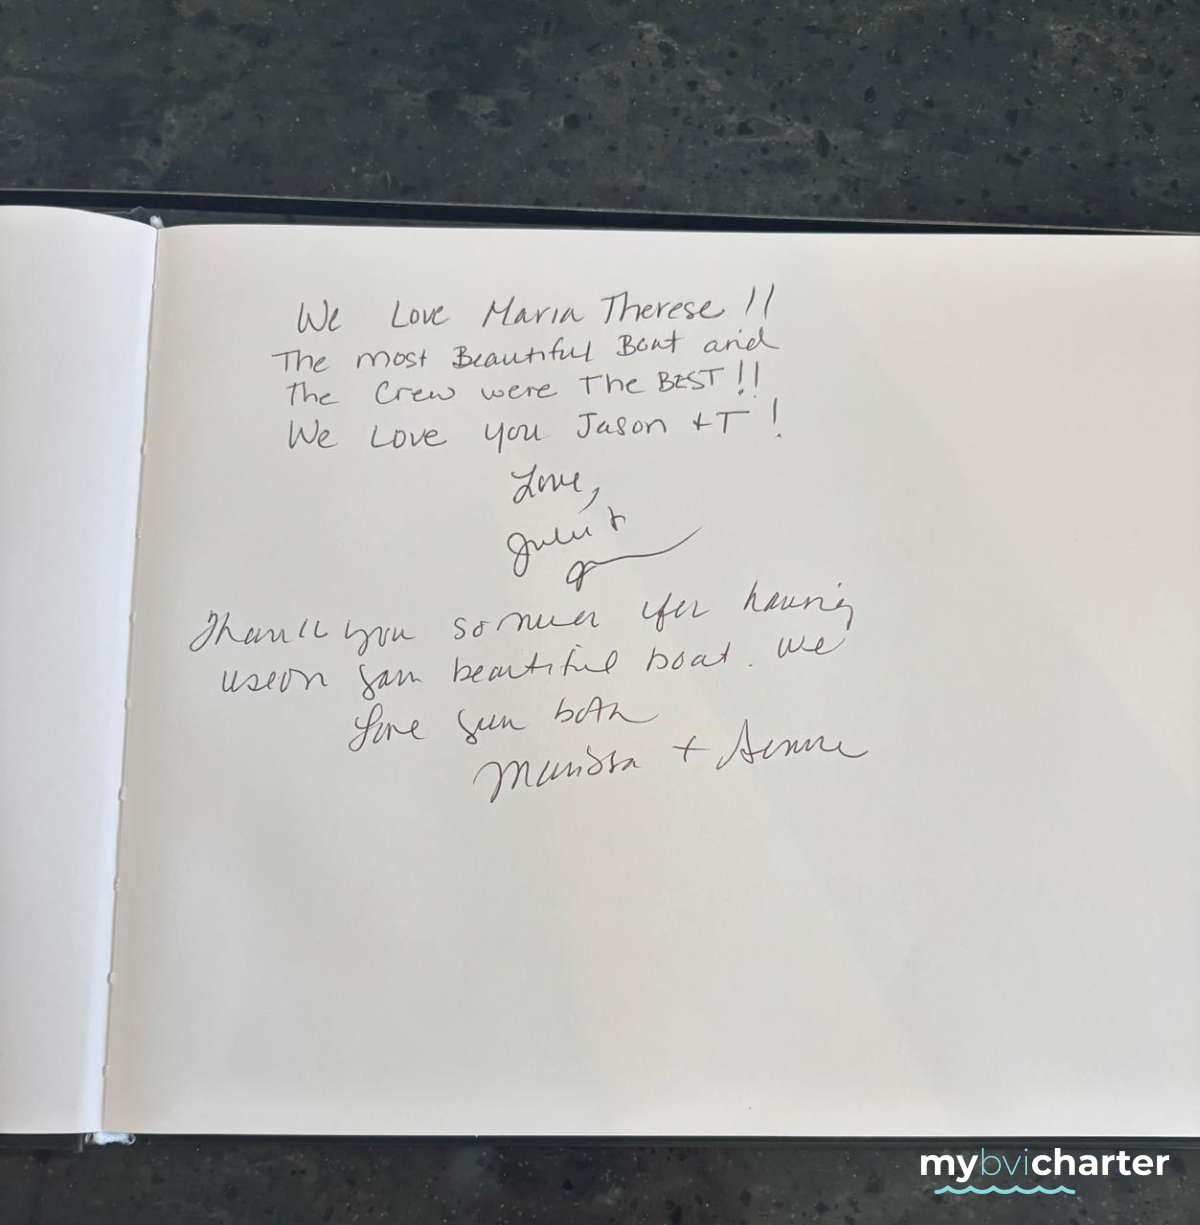 We Love Maria Therese !!
The most Beautiful Boat and
The Crew were The BEST !!
We Love you Jason + T !
Love,
Julie +
Thank you so much for having
us on your beautiful boat. We
Love you both
Marissa +
mybvicharter